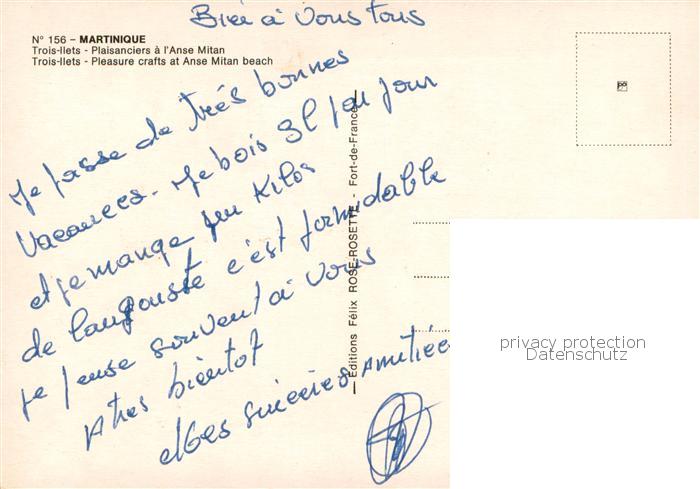 Bien à vous tous
N° 156 – MARTINIQUE
Trois-Ilets - Plaisanciers à l'Anse Mitan
Trois-Ilets - Pleasure crafts at Anse Mitan beach
Je passe de très bonnes
Vacances. Je bois 3l par jour
et je mange un Kilos
de langouste c'est formidable
je pense souvent à vous
A très bientot
Mes sincères Amitiées
— Editions Félix ROSE-ROSETTE - Fort-de-France —
privacy protection
Datenschutz